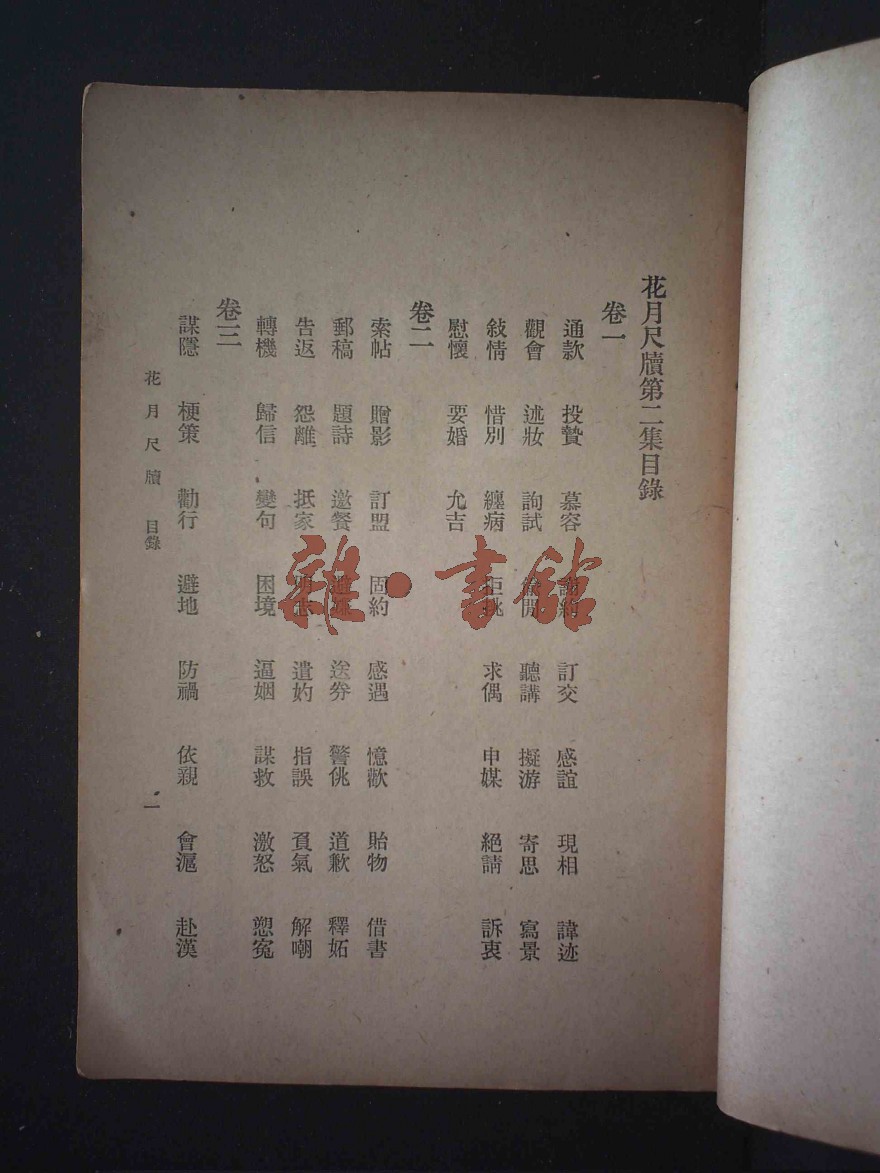 花月尺牘第二集目錄
卷一
通款 投贄 慕容 謝約 訂交 感誼 現相 諱迹
觀會 述妝 詢試 聽講 擬游 寄思 寫景
敍情 惜別 纏病 拒挑 求偶 申媒 絕請 訴衷
慰懷 要婚 允吉
卷二
索帖 贈影 訂盟 固約 感遇 憶歡 貽物 借書
郵稿 題詩 邀餐 送券 警佻 道歉 釋妬
告返 怨離 抵家 明志 遣妁 指誤 負氣 解嘲
轉機 歸信 變句 困境 逼姻 謀救 激怒 愬冤
卷三
謀隱 梗策 勸行 避地 防禍 依親 會滬 赴漢
花月尺牘 目錄
一
雜·書館